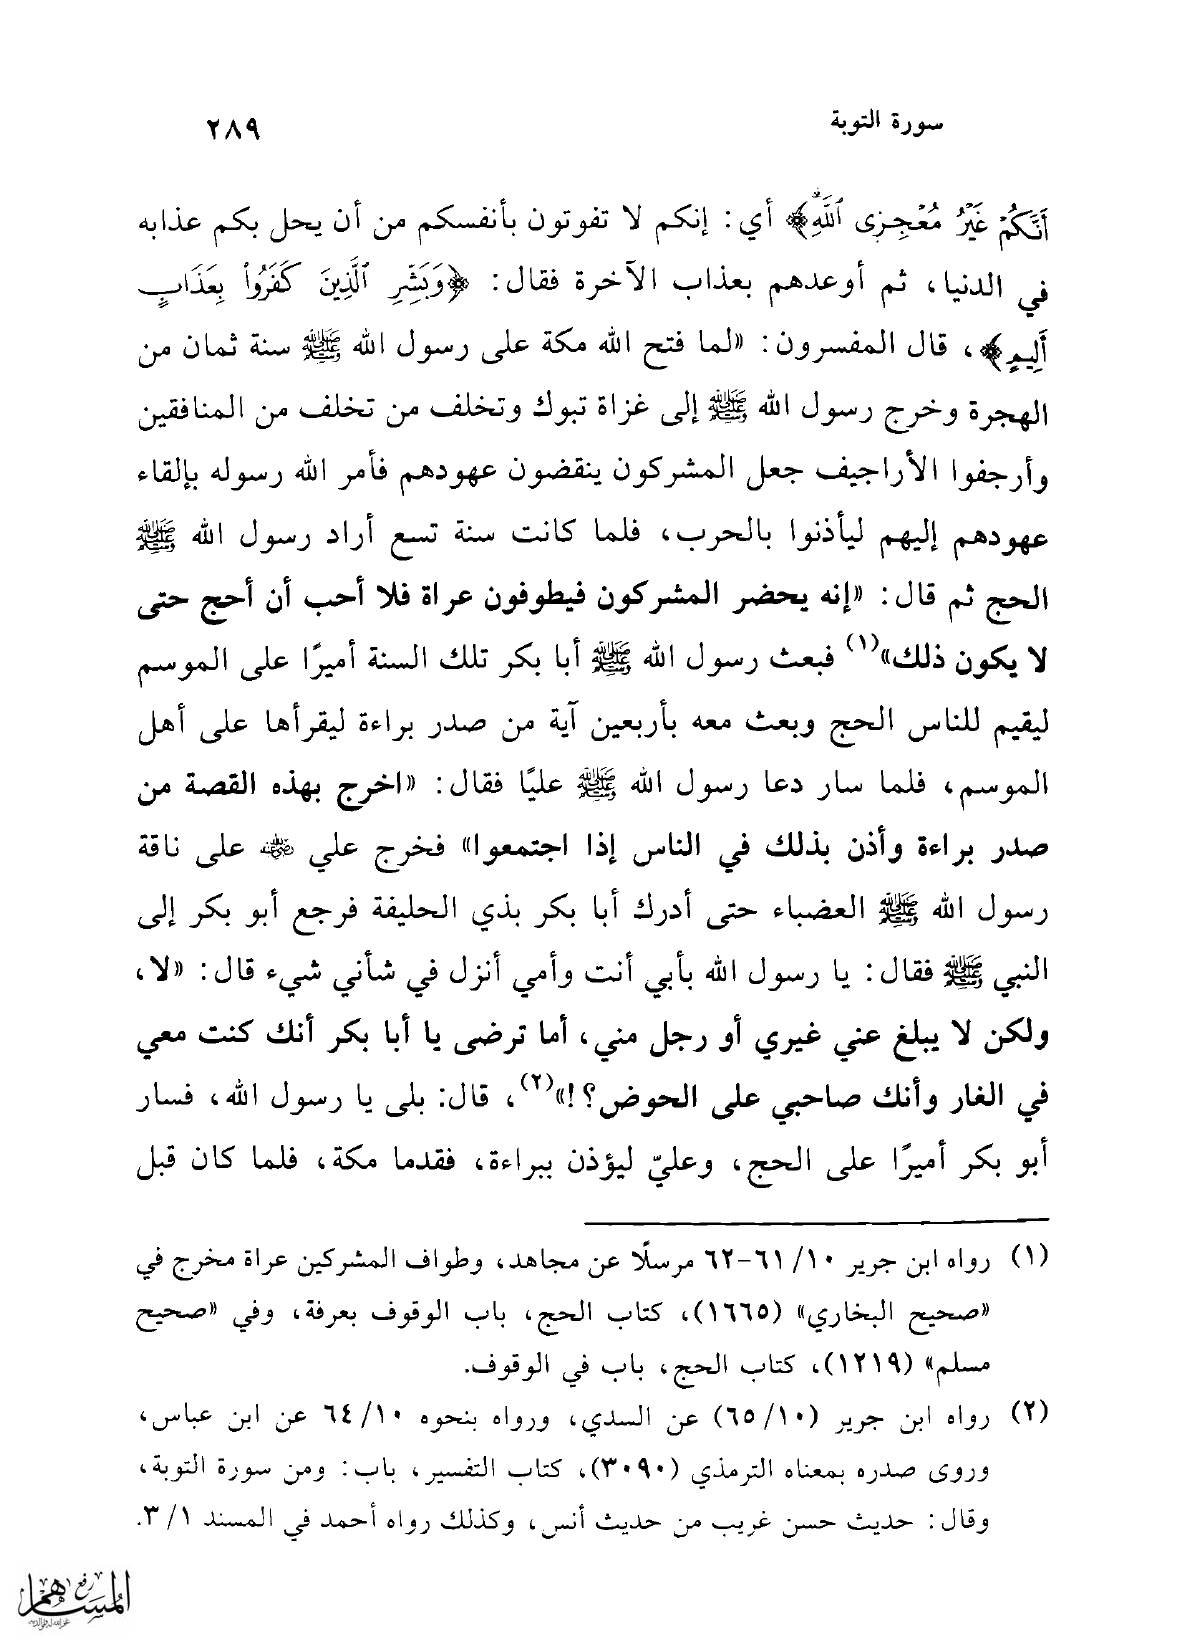 سورة التوبة
٢٨٩
أَنَّكُمْ غَيْرُ مُعْجِزِى ٱللَّهِ ۗ﴾ أي: إنكم لا تفوتون بأنفسكم من أن يحل بكم عذابه
في الدنيا، ثم أوعدهم بعذاب الآخرة فقال: ﴿وَبَشِّرِ ٱلَّذِينَ كَفَرُوا۟ بِعَذَابٍ
أَلِيمٍ﴾، قال المفسرون: «لما فتح الله مكة على رسول الله ﷺ سنة ثمان من
الهجرة وخرج رسول الله ﷺ إلى غزاة تبوك وتخلف من تخلف من المنافقين
وأرجفوا الأراجيف جعل المشركون ينقضون عهودهم فأمر الله رسوله بإلقاء
عهودهم إليهم ليأذنوا بالحرب، فلما كانت سنة تسع أراد رسول الله ﷺ
الحج ثم قال: «إنه يحضر المشركون فيطوفون عراة فلا أحب أن أحج حتى
لا يكون ذلك»(١) فبعث رسول الله ﷺ أبا بكر تلك السنة أميرًا على الموسم
ليقيم للناس الحج وبعث معه بأربعين آية من صدر براءة ليقرأها على أهل
الموسم، فلما سار دعا رسول الله ﷺ عليًا فقال: «اخرج بهذه القصة من
صدر براءة وأذن بذلك في الناس إذا اجتمعوا» فخرج علي رضي الله عنه على ناقة
رسول الله ﷺ العضباء حتى أدرك أبا بكر بذي الحليفة فرجع أبو بكر إلى
النبي ﷺ فقال: يا رسول الله بأبي أنت وأمي أنزل في شأني شيء قال: «لا،
ولكن لا يبلغ عني غيري أو رجل مني، أما ترضى يا أبا بكر أنك كنت معي
في الغار وأنك صاحبي على الحوض؟!»(٢)، قال: بلى يا رسول الله، فسار
أبو بكر أميرًا على الحج، وعليّ ليؤذن ببراءة، فقدما مكة، فلما كان قبل
(١) رواه ابن جرير ١٠/ ٦١-٦٢ مرسلًا عن مجاهد، وطواف المشركين عراة مخرج في
«صحيح البخاري» (١٦٦٥)، كتاب الحج، باب الوقوف بعرفة، وفي «صحيح
مسلم» (١٢١٩)، كتاب الحج، باب في الوقوف.
(٢) رواه ابن جرير (١٠/ ٦٥) عن السدي، ورواه بنحوه ١٠/ ٦٤ عن ابن عباس،
وروى صدره بمعناه الترمذي (٣٠٩٠)، كتاب التفسير، باب: ومن سورة التوبة،
وقال: حديث حسن غريب من حديث أنس، وكذلك رواه أحمد في المسند ١/ ٣.
رفع
المساهم